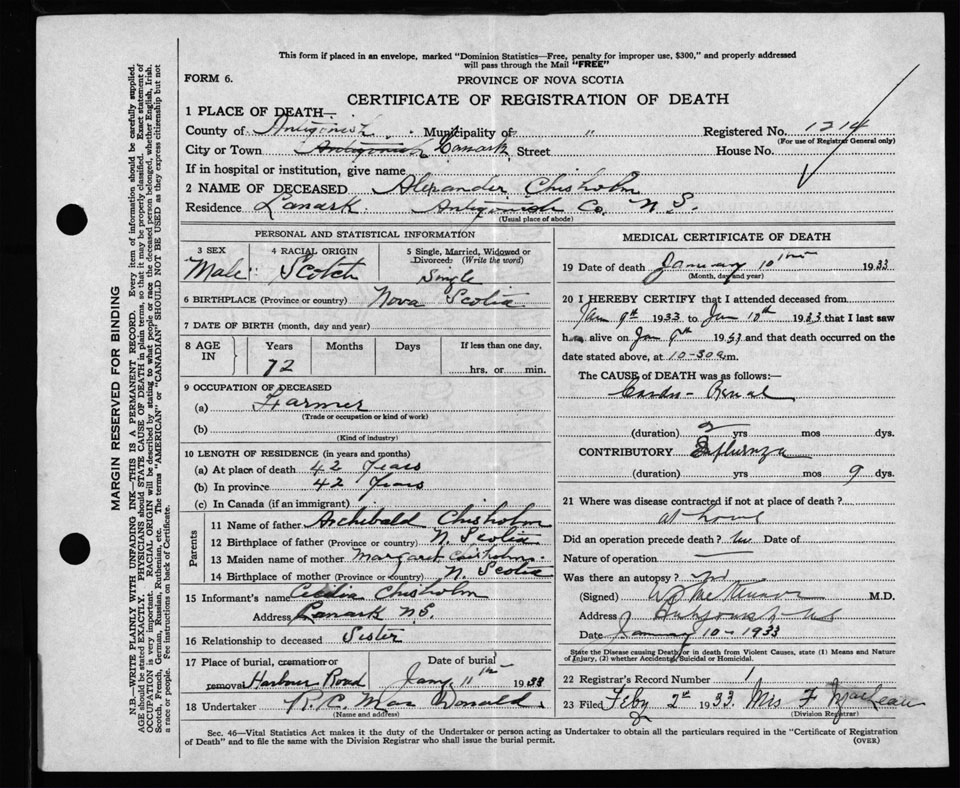 This form if placed in an envelope, marked "Dominion Statistics—Free, penalty for improper use, $300," and properly addressed
will pass through the Mail "FREE"
FORM 6.
PROVINCE OF NOVA SCOTIA
CERTIFICATE OF REGISTRATION OF DEATH
1 PLACE OF DEATH—
County of Antigonish Municipality of " Registered No. 1214
(For use of Registrar General only)
City or Town Antigonish Lanark Street House No.
If in hospital or institution, give name
2 NAME OF DECEASED Alexander Chisholm
Residence Lanark Antigonish Co. N.S.
(Usual place of abode)
PERSONAL AND STATISTICAL INFORMATION
3 SEX 4 RACIAL ORIGIN 5 Single, Married, Widowed or
Divorced: (Write the word)
Male Scotch Single
6 BIRTHPLACE (Province or country) Nova Scotia
7 DATE OF BIRTH (month, day and year)
8 AGE IN Years Months Days If less than one day,
72 hrs. or min.
9 OCCUPATION OF DECEASED
(a) Farmer
(Trade or occupation or kind of work)
(b)
(Kind of industry)
10 LENGTH OF RESIDENCE (in years and months)
(a) At place of death 42 Years
(b) In province 42 Years
(c) In Canada (if an immigrant)
Parents
11 Name of father Archibald Chisholm
12 Birthplace of father (Province or country) N. Scotia
13 Maiden name of mother Margaret Chisholm
14 Birthplace of mother (Province or country) N. Scotia
15 Informant's name Cecilia Chisholm
Address Lanark N.S.
16 Relationship to deceased Sister
17 Place of burial, cremation or Date of burial
removal Harbour Road Jany 11th 1933
18 Undertaker R.C. Mac Donald
(Name and address)
MEDICAL CERTIFICATE OF DEATH
19 Date of death January 10 1933
(Month, day and year)
20 I HEREBY CERTIFY that I attended deceased from
Jan 9th 1933 to Jan 10th 1933 that I last saw
h alive on Jan 9th 1933 and that death occurred on the
date stated above, at 10-30 a.m.
The CAUSE of DEATH was as follows:
Cardio-Renal
(duration) 2 yrs mos dys.
CONTRIBUTORY Influenza
(duration) yrs mos 9 dys.
21 Where was disease contracted if not at place of death?
at home
Did an operation precede death? no Date of
Nature of operation
Was there an autopsy? no
(Signed) M.D.
Address Antigonish NS
Date January 10 - 1933
State the Disease causing Death, or in death from Violent Causes, state (1) Means and Nature
of Injury, (2) whether Accidental, Suicidal or Homicidal.
22 Registrar's Record Number 1
23 Filed Feby 2d 1933 Mrs F MacLean
(Division Registrar)
Sec. 46—Vital Statistics Act makes it the duty of the Undertaker or person acting as Undertaker to obtain all the particulars required in the "Certificate of Registration
of Death" and to file the same with the Division Registrar who shall issue the burial permit.
(OVER)
MARGIN RESERVED FOR BINDING
N.B.—WRITE PLAINLY WITH UNFADING INK—THIS IS A PERMANENT RECORD. Every item of information should be carefully supplied.
AGE should be stated EXACTLY. PHYSICIANS should STATE CAUSE OF DEATH in plain terms, so that it may be properly classified. Exact statement of
OCCUPATION is very important. RACIAL ORIGIN will be described by stating to what people or race the deceased person belonged, whether English, Irish,
Scotch, French, German, Russian, Ruthenian, etc. The terms "AMERICAN" or "CANADIAN" SHOULD NOT BE USED as they express citizenship but not
a race or people. See instructions on back of Certificate.